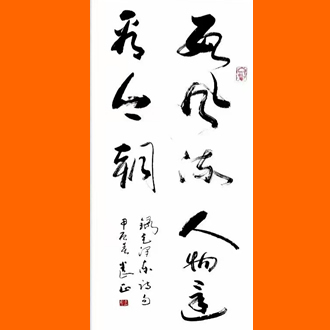 数风流人物还
看今朝
录毛泽东诗句
甲辰